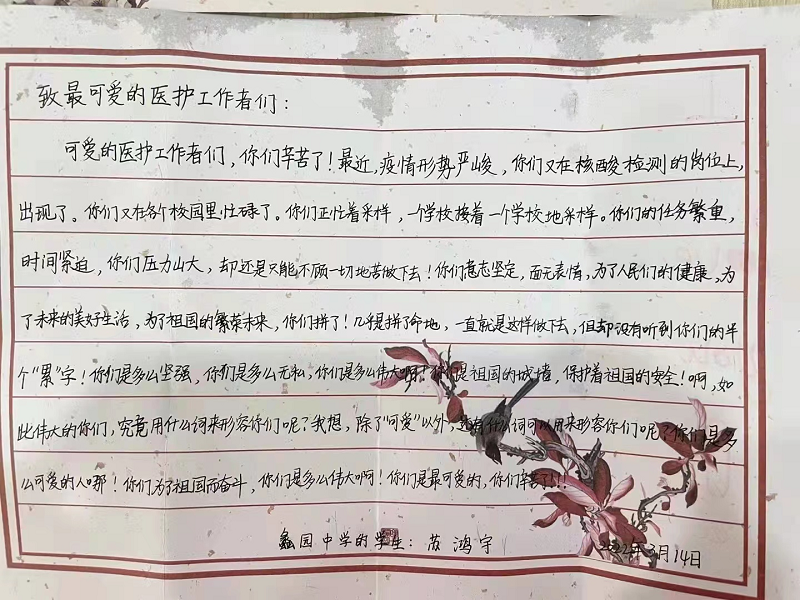 致最可爱的医护工作者们：
可爱的医护工作者们，你们辛苦了！最近，疫情形势严峻，你们又在核酸检测的岗位上，
出现了。你们又在各个校园里忙碌了。你们正忙着采样，一个学校接着一个学校地采样。你们的任务繁重，
时间紧迫，你们压力山大，却还是只能不顾一切地苦做下去！你们意志坚定，面无表情，为了人民们的健康，为
了未来的美好生活，为了祖国的繁荣未来，你们拼了！几乎是拼了命地，一直就是这样做下去，但却没有听到你们的半
个“累”字！你们是多么坚强，你们是多么无私，你们是多么伟大啊！你们是祖国的城墙，保护着祖国的安全！啊，如
此伟大的你们，究竟用什么词来形容你们呢？我想，除了“可爱”以外，还有什么词可以用来形容你们呢？你们是多
么可爱的人哪！你们为了祖国而奋斗，你们是多么伟大啊！你们是最可爱的，你们辛苦了！！！
蠡园中学的学生：苏鸿宇
2022年3月14日